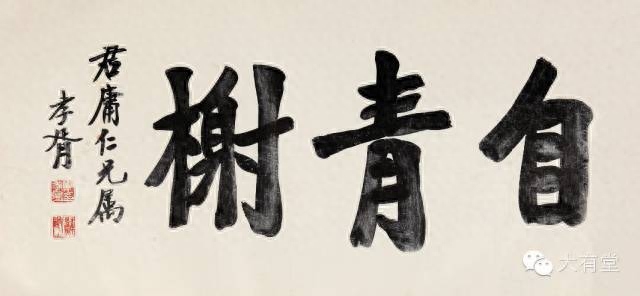 自青榭
君庸仁兄属
孝胥
大有堂